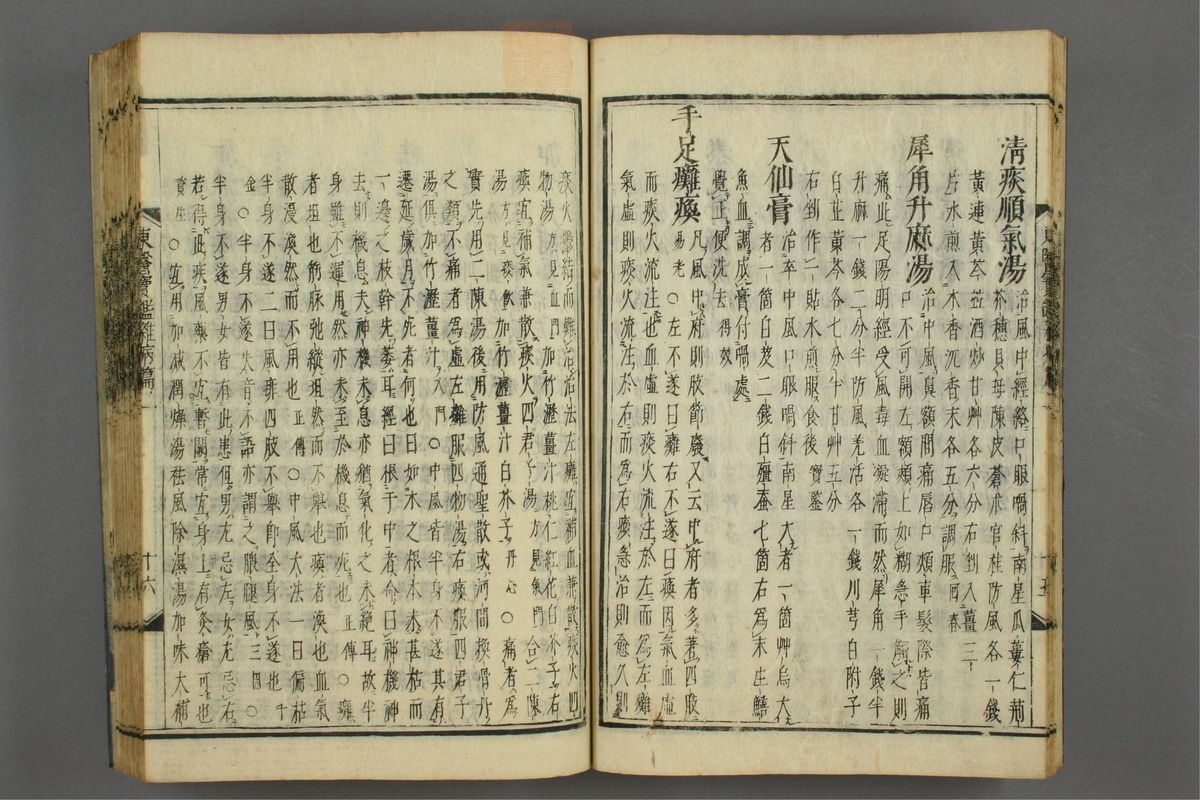 清痰順氣湯 治風中經絡口眼喎斜南星瓜蔞仁荊
芥穗貝母陳皮蒼朮官桂防風各一錢
黃連黃芩並酒炒甘艸各六分右剉入薑三
片水煎入木香沉香末各五分調服回春
犀角升麻湯 治中風鼻額間痛唇口頰車髮際皆痛
口不可開左額頰上如糊急手觸之則
痛此足陽明經受風毒血凝滯而然犀角一錢半
升麻一錢二分半防風羌活各一錢川芎白附子
白芷黃芩各七分半甘艸五分
右剉作一貼水煎服食後寶鑒
天仙膏 治卒中風口眼喎斜南星大者一箇艸烏大
者一箇白芨二錢白殭蚕七箇右爲末生鱔
魚血調成膏付喎處
覺正便洗去得效
手足癱瘓 凡風中府則肢節廢又云中府者多著四肢
易老○左不遂曰癱右不遂曰瘓因氣血虛
而痰火流注也血虛則痰火流注於左而爲左癱
氣虛則痰火流注於右而爲右瘓急治則愈久則
痰火鬱結而難治治法左癱宜補血兼散痰火四
物湯方見血門加竹瀝薑汁桃仁紅花白芥子右
瘓宜補氣兼散痰火四君子湯方見氣門合二陳
湯方見痰飮加竹瀝薑汁白芥子丹心○痛者爲
實先用二陳湯後用防風通聖散或河間換骨丹
之類不痛者爲虛左癱服四物湯右瘓服四君子
湯俱加竹瀝薑汁入門○中風皆半身不遂其有
遷延歲月不死者何也曰如木之根本未甚枯而
一邊之枝幹先萎耳經曰根于中者命曰神機神
去則機息夫神機未息亦猶氣化之未絕耳故半
身雖不運用然亦未至於機息而死也正傳○癱
者坦也筋脉弛縱坦然而不舉也瘓者渙也血氣
散漫渙然而不用也正傳○中風大法一曰偏枯
半身不遂二曰風痱四肢不舉卽全身不遂也千
金○半身不遂失音不語亦謂之腲腿風三因○
半身不遂男女皆有此患但男尤忌左女尤忌右
若得此疾風藥不宜暫闕常宜身上有灸瘡可也
資生○宜用加减潤燥湯祛風除濕湯加味大補
東醫寶鑑雜病篇二
十五
十六